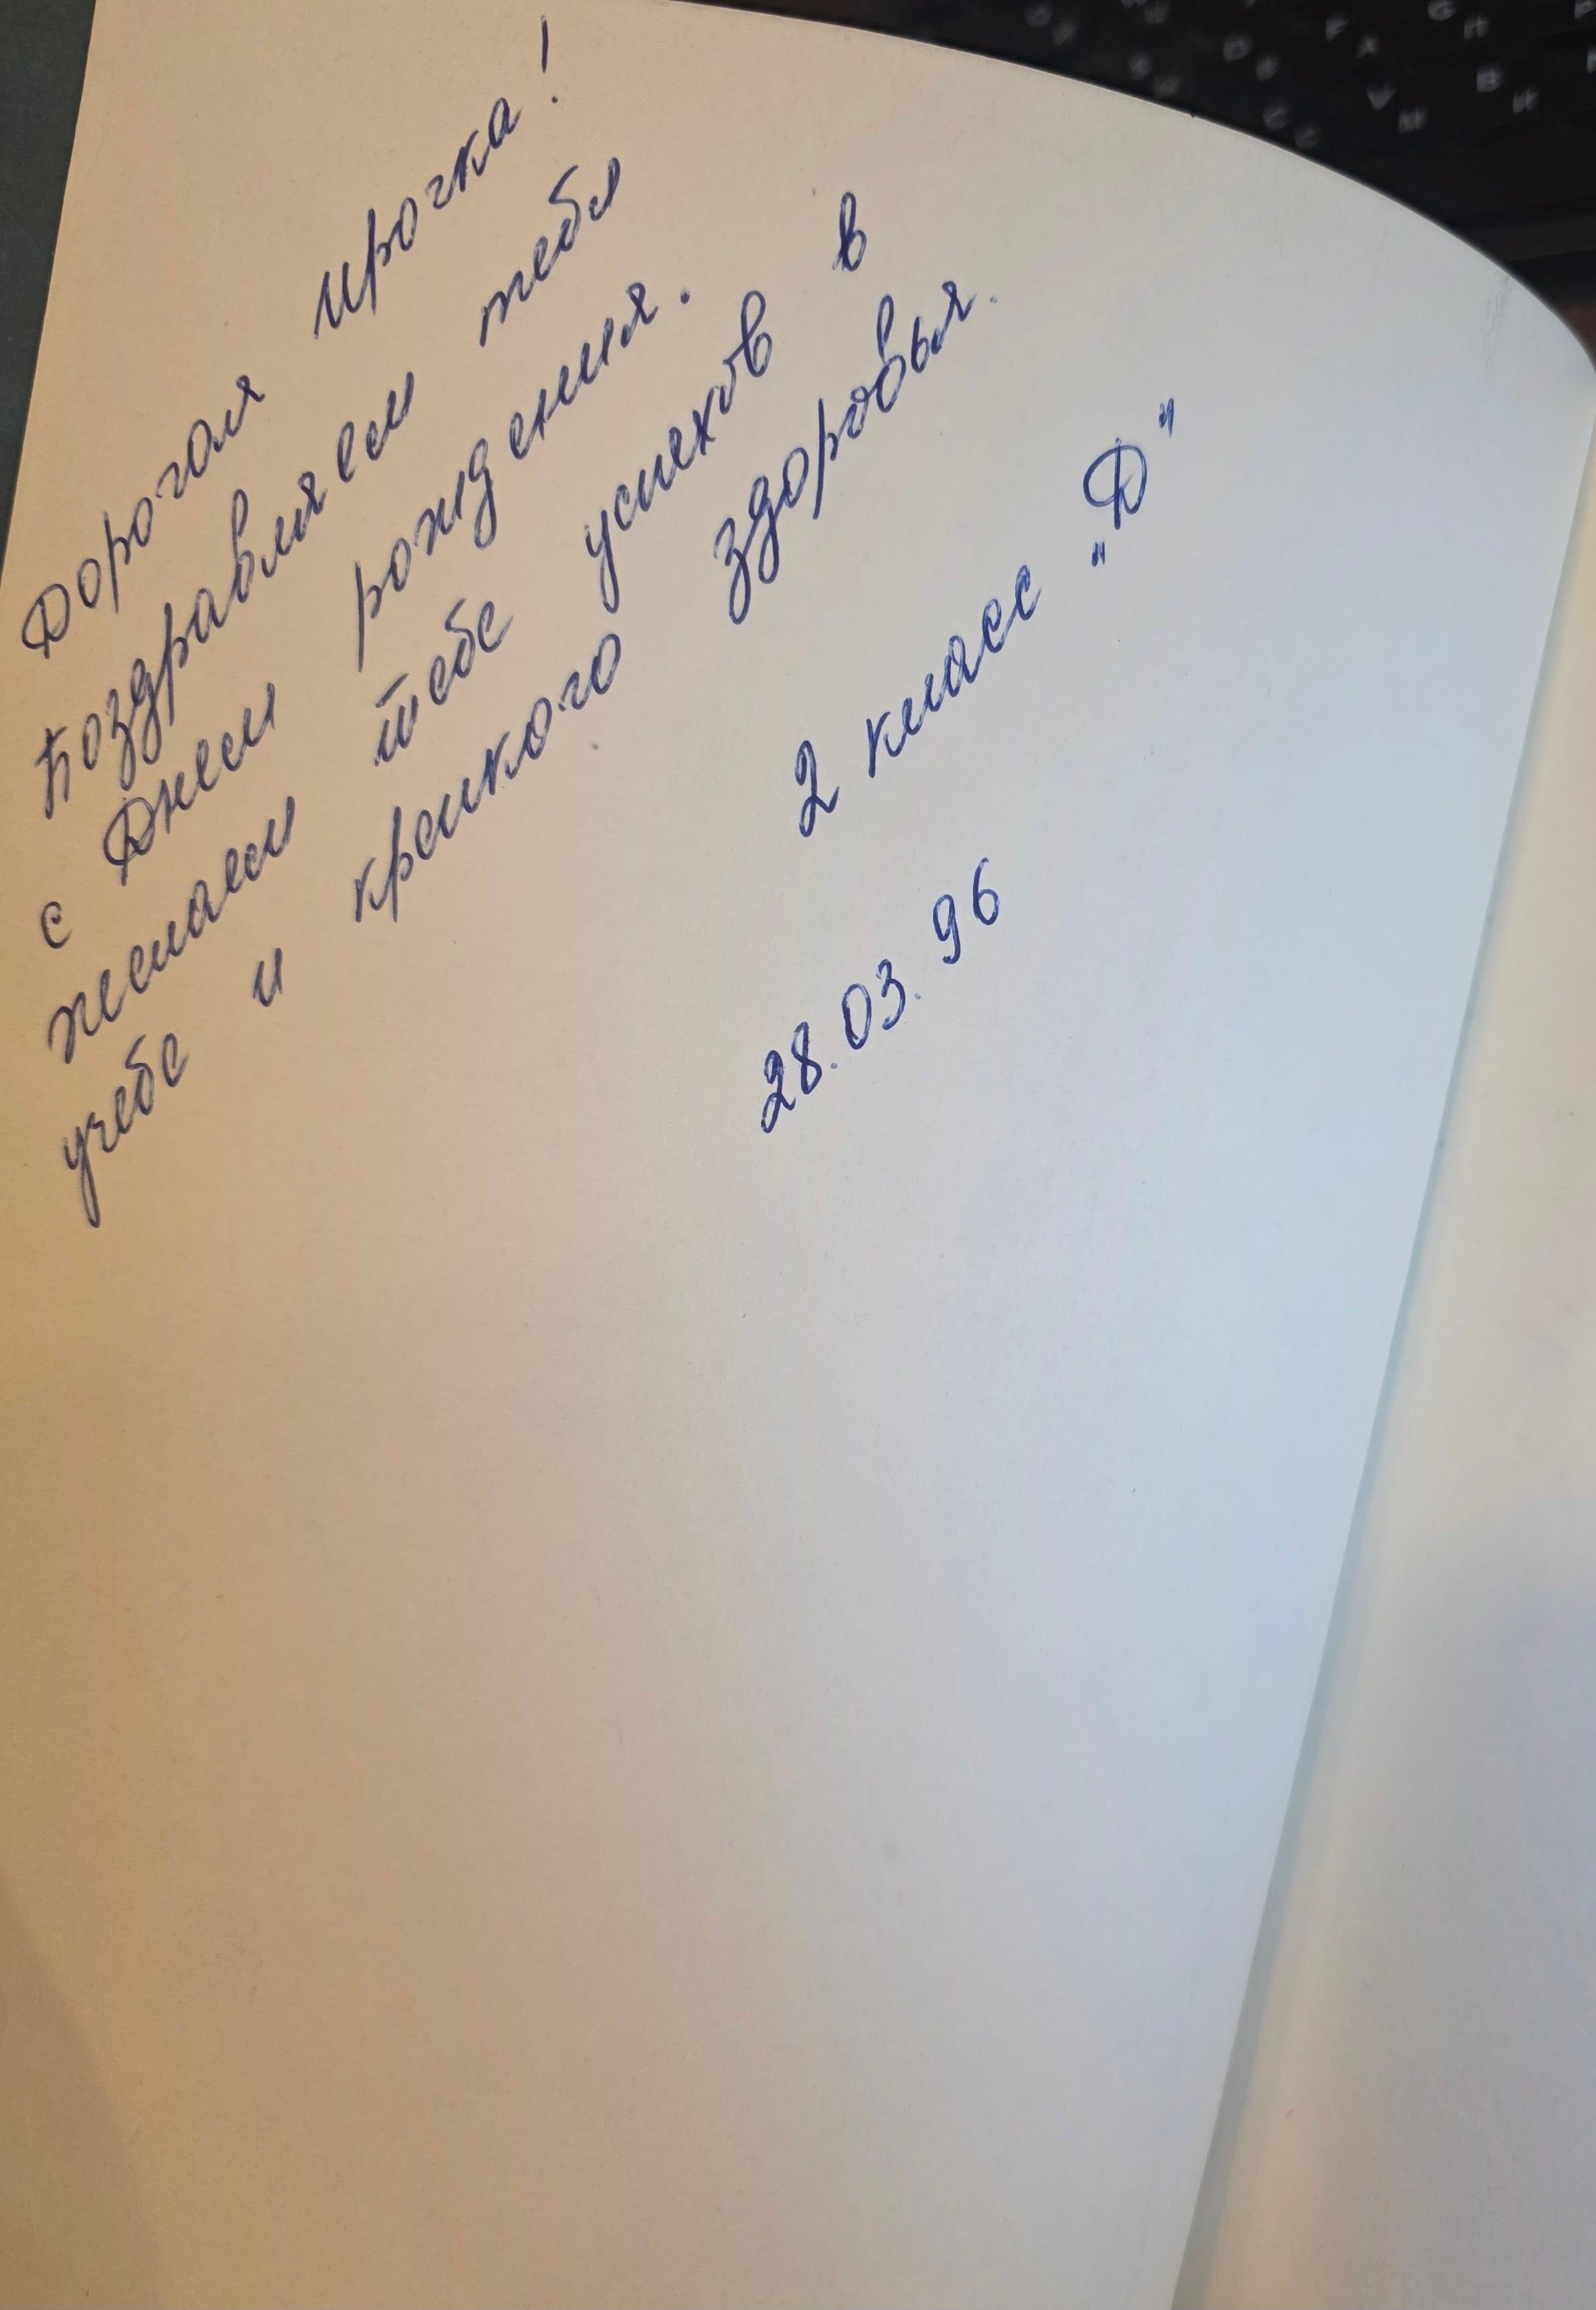 Дорогая Ирочка!
Поздравляем тебя
с Днем рождения.
желаем тебе успехов в
учебе и крепкого здоровья.
2 класс „Д"
28.03.96